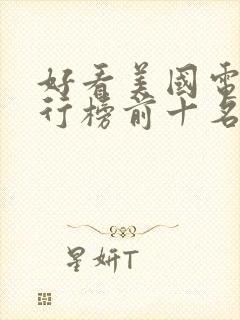 好看美國電
行榜前十名
星妍T